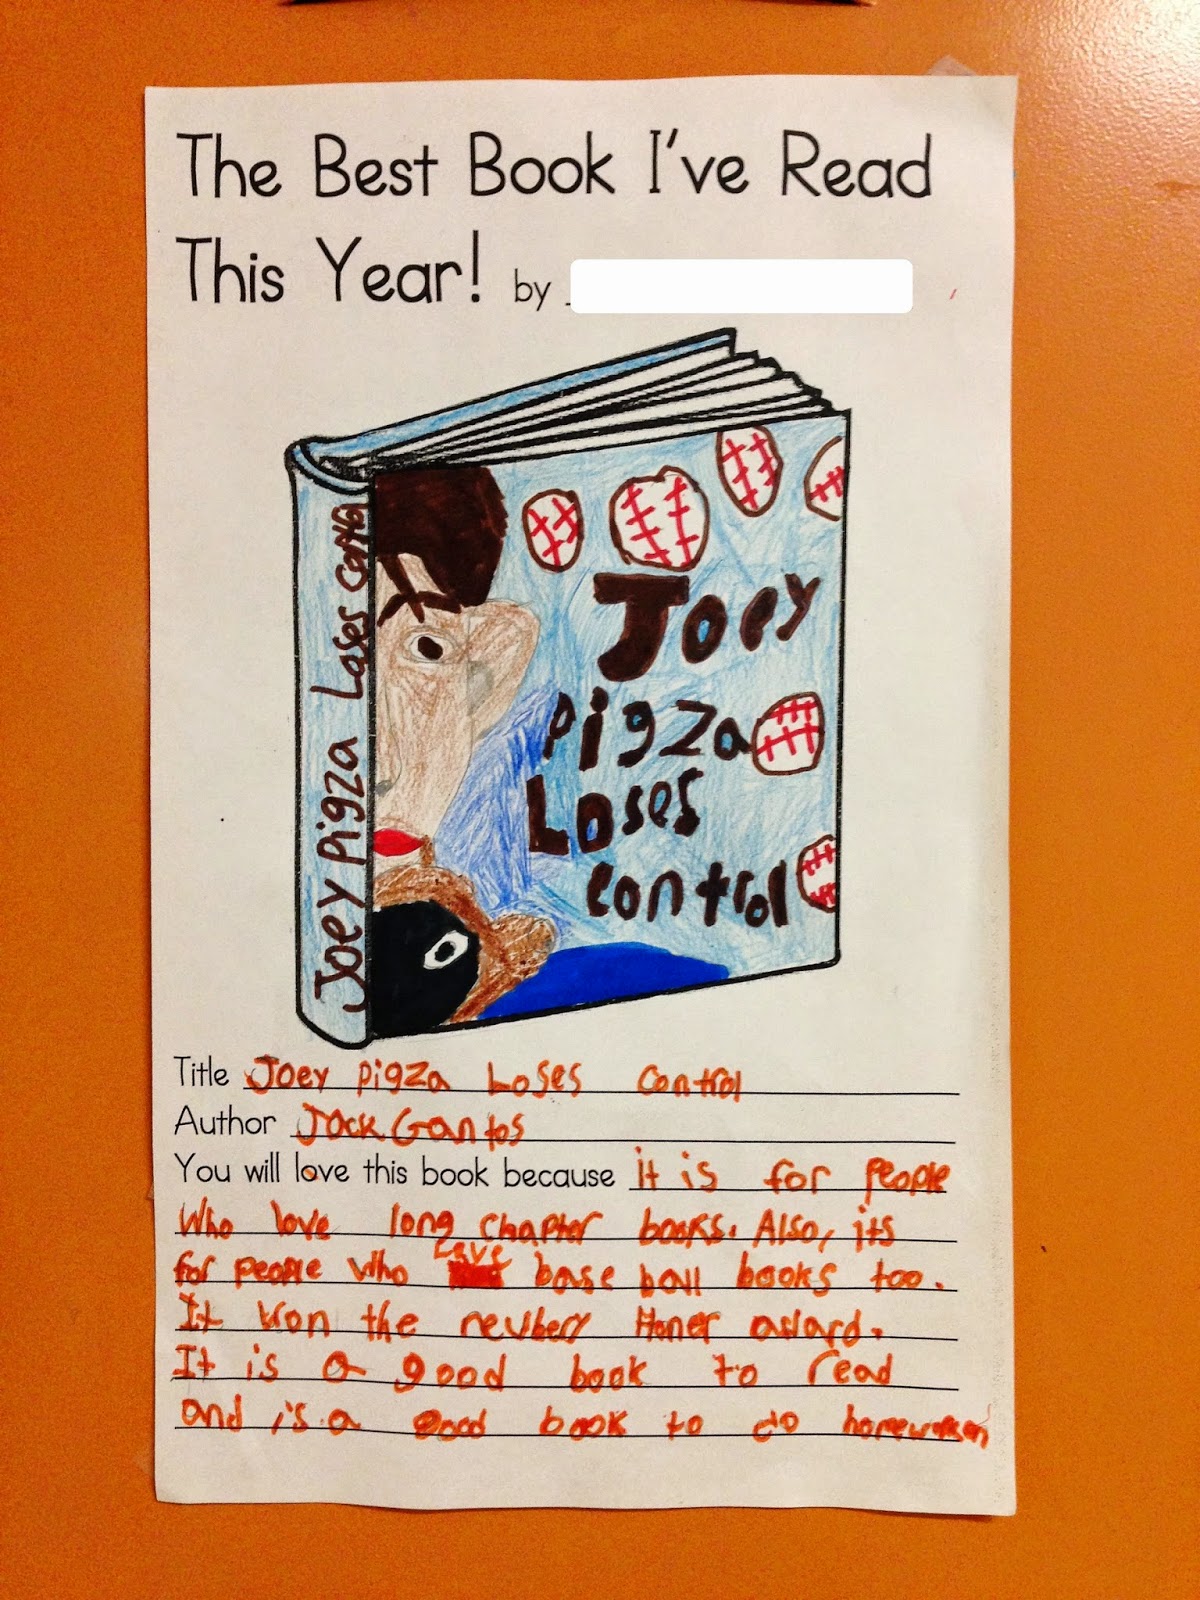 The Best Book I've Read
This Year! by
Joey Pigza Loses Contro
Joey
Pigza
Loses
control
Title Joey Pigza Loses Control
Author Jack Gantos
You will love this book because it is for people
who love long chapter books. Also, its
for people who Love base ball books too.
It won the newbery Honer award.
It is a good book to read
and is a good book to do homework on